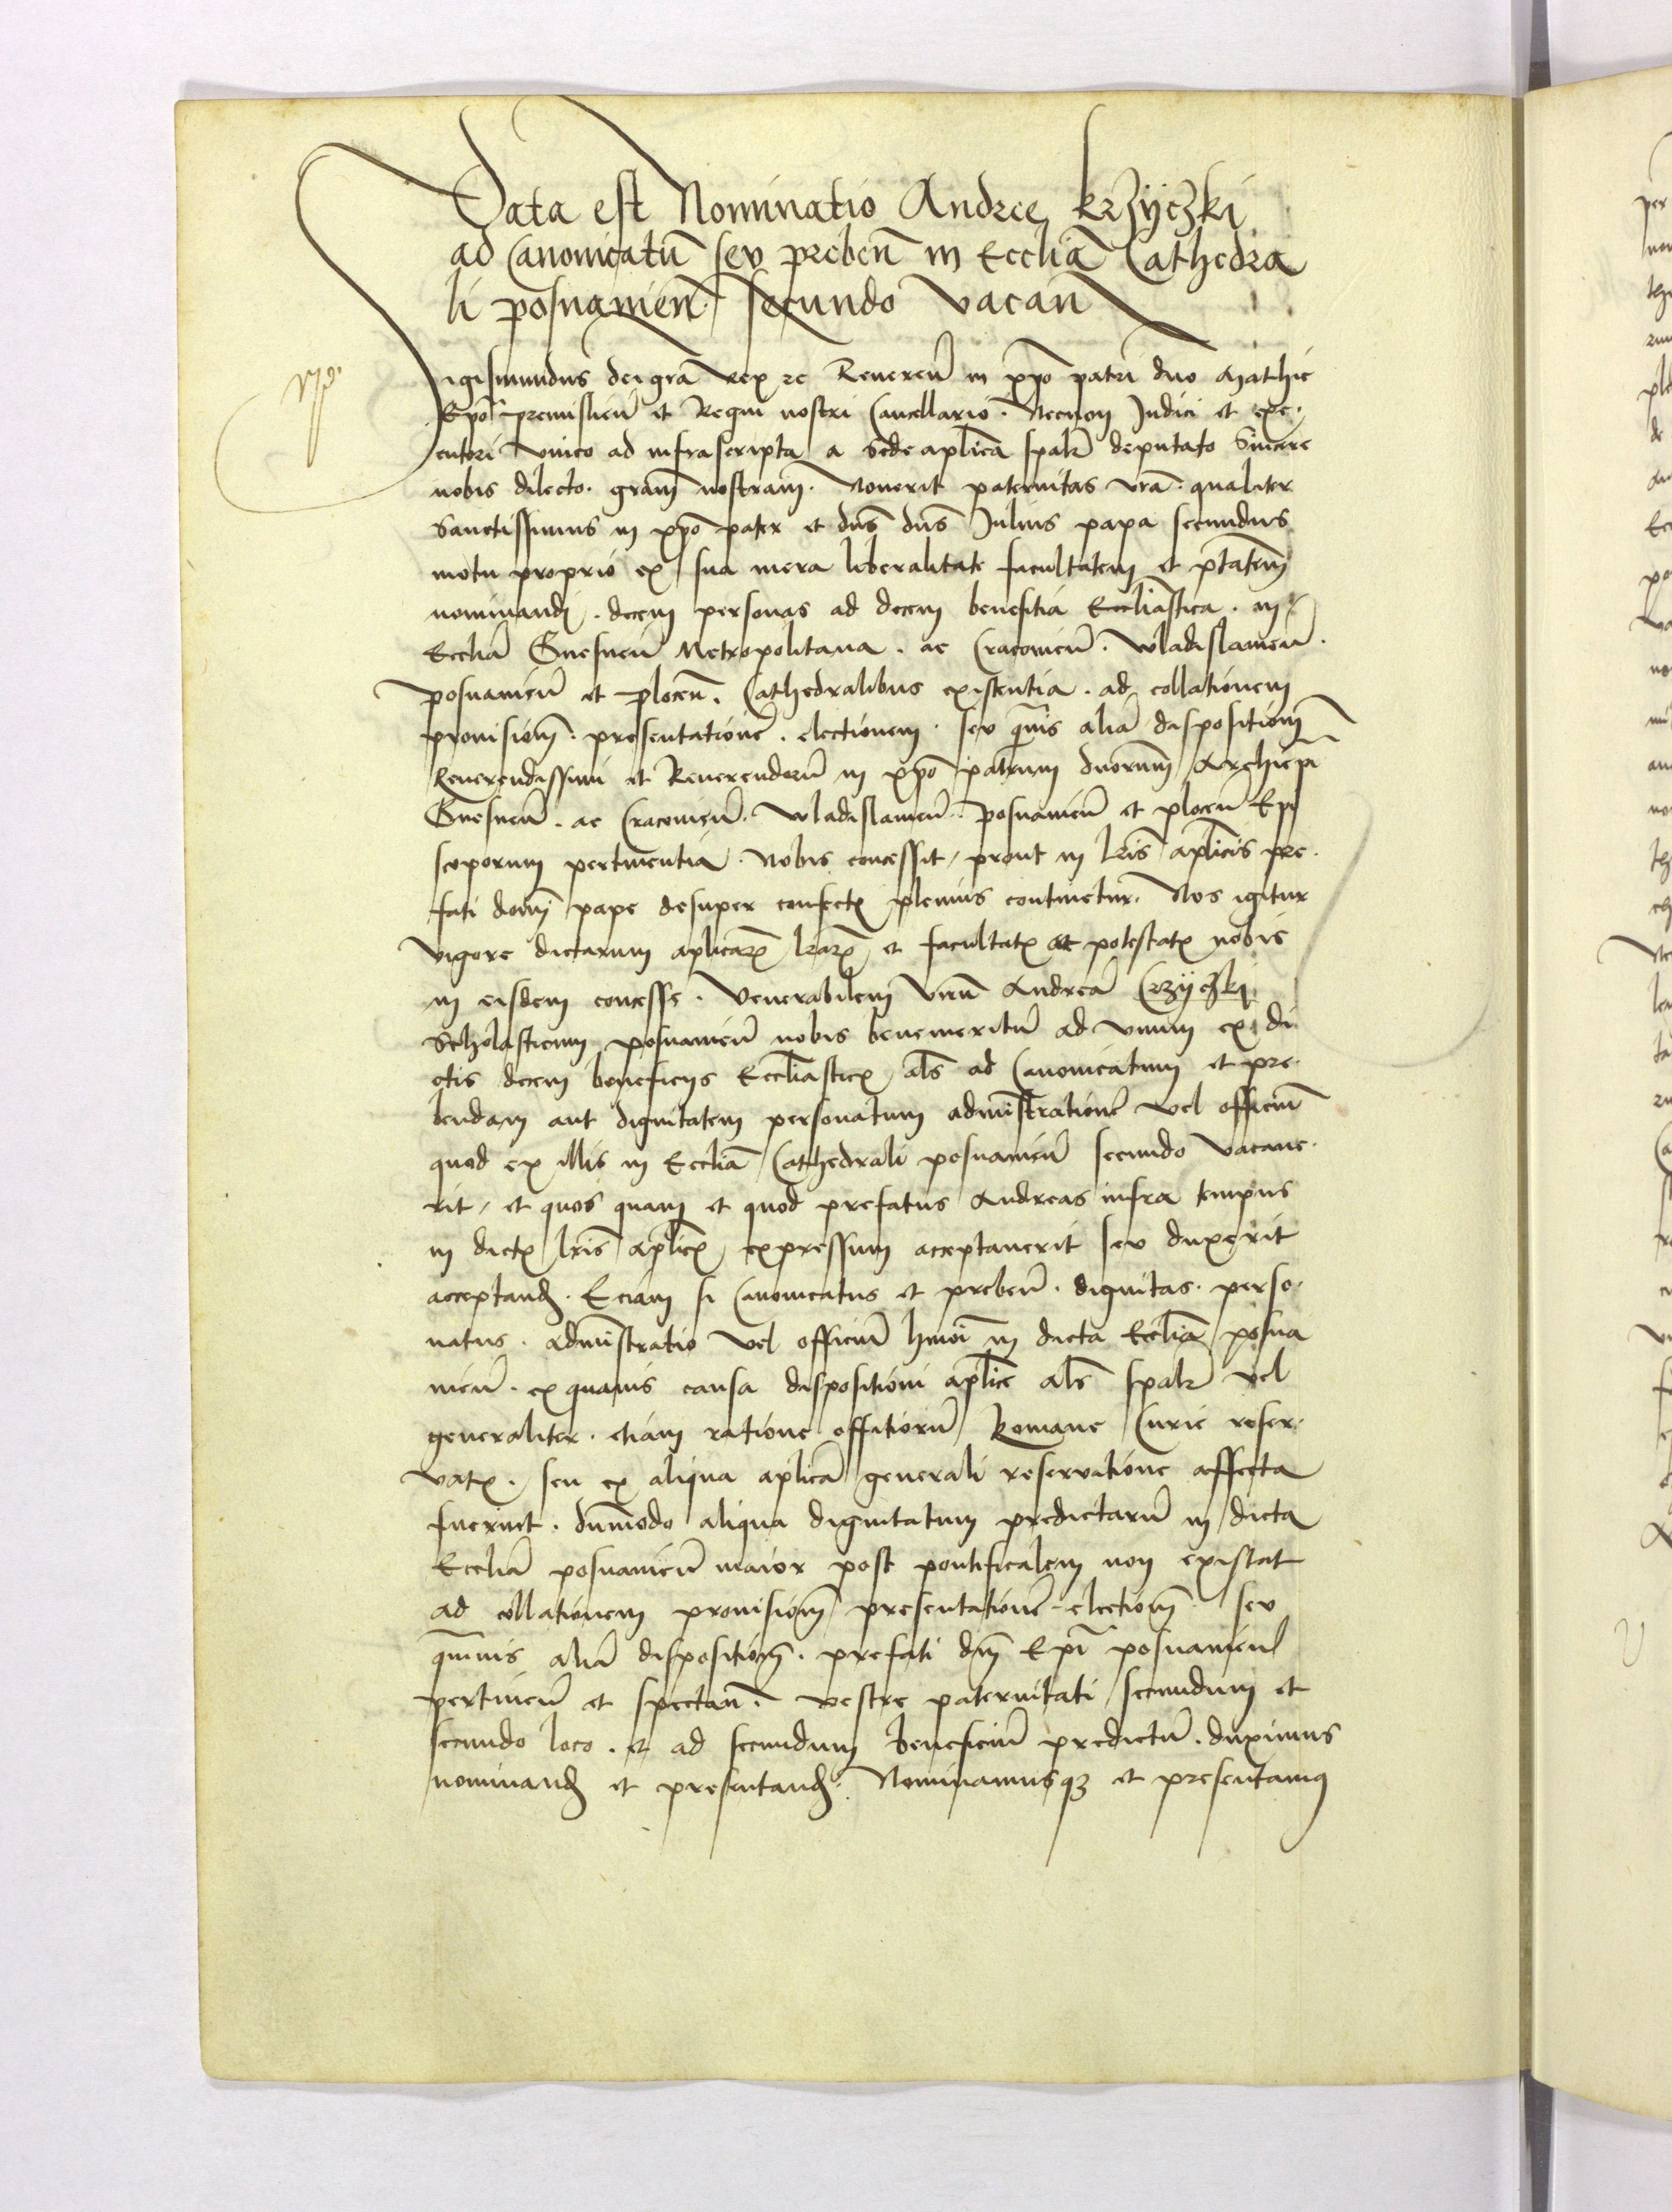 Data est Nominatio Andree krzÿczki
ad Canonicatū seu prebeñ in Eccliã Cathedra
li posnanieñ secundo vacañ
Sigismundus dei grã rex zc Reuereñ in xp̃o patri dño Mathie
Epõ premislieñ et Regni nostri Cancellario · Necnon Iudici et exe-
cutori vnico ad infrascripta a Sede aplica spalr deputato Sincere
nobis dilecto · gram nostram · Nouerit paternitas vrã · qualiter
Sanctissimus in xp̃o pater et dñs dñs Iulius papa secundus
motu proprio ex sua mera liberalitate facultatem et ptatem
nominandi · decem personas ad decem benefitia Eccliastica · in
Eccliã Gnesneñ Metropolitana · ac Cracouieñ · Wladislauieñ ·
posnanieñ et ploceñ · Cathedralibus existentia · ad collationem
prouisiom̃ · presentationẽ · electionem · seu quãuis aliã dispositiom̃
Reuerendissimi et Reuerendorū in xp̃o patrum dñorum Archiepi
Gnesneñ · ac Cracouieñ · Wladislauieñ · posnanieñ et ploceñ Epi
scoporum pertinentia · Nobis concessit, prout in lris aplicis pre-
fati domĩ pape desuper confectis plenius continetur · Nos igitur
vigore dictarum aplicarz lrarz et facultatis et potestatis nobis
in eisdem concesse · Venerabilem virū Andreã Crzÿczki
Scholasticum posnanieñ nobis benemeritū ad vnum ex di
ctis decem beneficijs Eccliasticis als ad Canonicatum et pre-
bendam aut dignitatem personatum administrationẽ vel officiū
quod ex illis in Eccliã Cathedrali posnanieñ secundo vacaue-
rit, et quos quam et quod prefatus Andreas infra tempus
in dictis lris aplicis expressum acceptauerit seu duxerit
acceptand · Eciam si Canonicatus et prebeñ · dignitas · perso-
natus · administratio vel officiū hmoi in dicta Eccliã posna
nieñ · ex quauis causa dispositioni aplice als spalr vel
generaliter · etiam ratione offitiorū Romane Curie reser-
vatis · seu ex aliqua aplica generali reseruatione affecta
fuerint · dummodo aliqua dignitatum predictarū in dicta
Eccliã posnanieñ maior post pontificalem non existat
ad collationem prouisiom̃ presentationẽ · electiom̃ · seu
quãuis aliã dispositiom̃ · prefati dñi Epi posnanieñ
pertineñ et spectañ · vestre paternitati secundum et
secundo loco · et ad secundum beneficiū predictū · duximus
nominand et presentand · Nominamusqz et presentamus